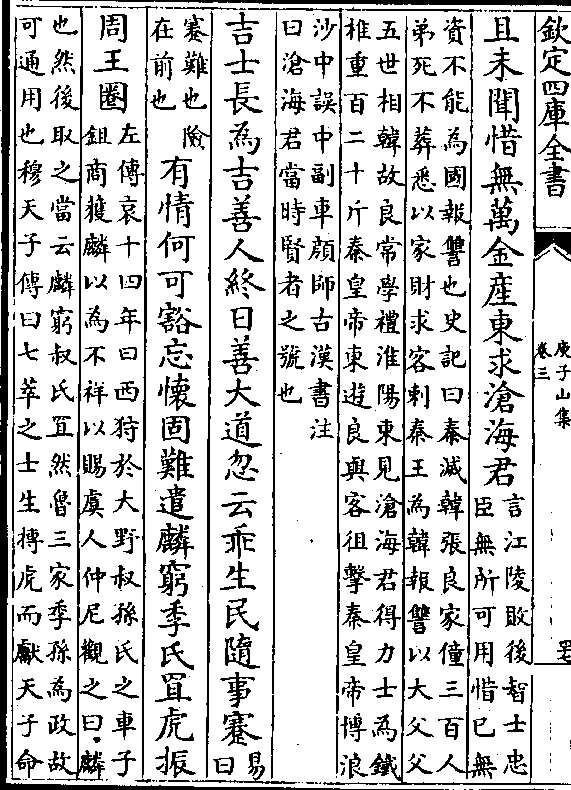 欽定四庫全書
庾子山集
卷三
且未聞惜無萬金產東求滄海君
言江陵敗後智士忠
臣無所可用惜已無
資不能為國報讐也史記曰秦滅韓張良家僮三百人
弟死不葬悉以家財求客刺秦王為韓報讐以大父父
五世相韓故良常學禮淮陽東見滄海君得力士為鐵
椎重百二十斤秦皇帝東遊良與客狙擊秦皇帝博浪
沙中誤中副車顔師古漢書注
曰滄海君當時賢者之號也
吉士長為吉善人終日善大道忽云乖生民隨事蹇
易
曰
蹇難也險
在前也
有情何可豁忘懷固難遣麟窮季氏罝虎振
周王圈
左傳哀十四年曰西狩於大野叔孫氏之車子
鉏商獲麟以為不祥以賜虞人仲尼觀之曰麟
也然後取之當云麟窮叔氏罝然魯三家季孫為政故
可通用也穆天子傳曰七萃之士生搏虎而獻天子命